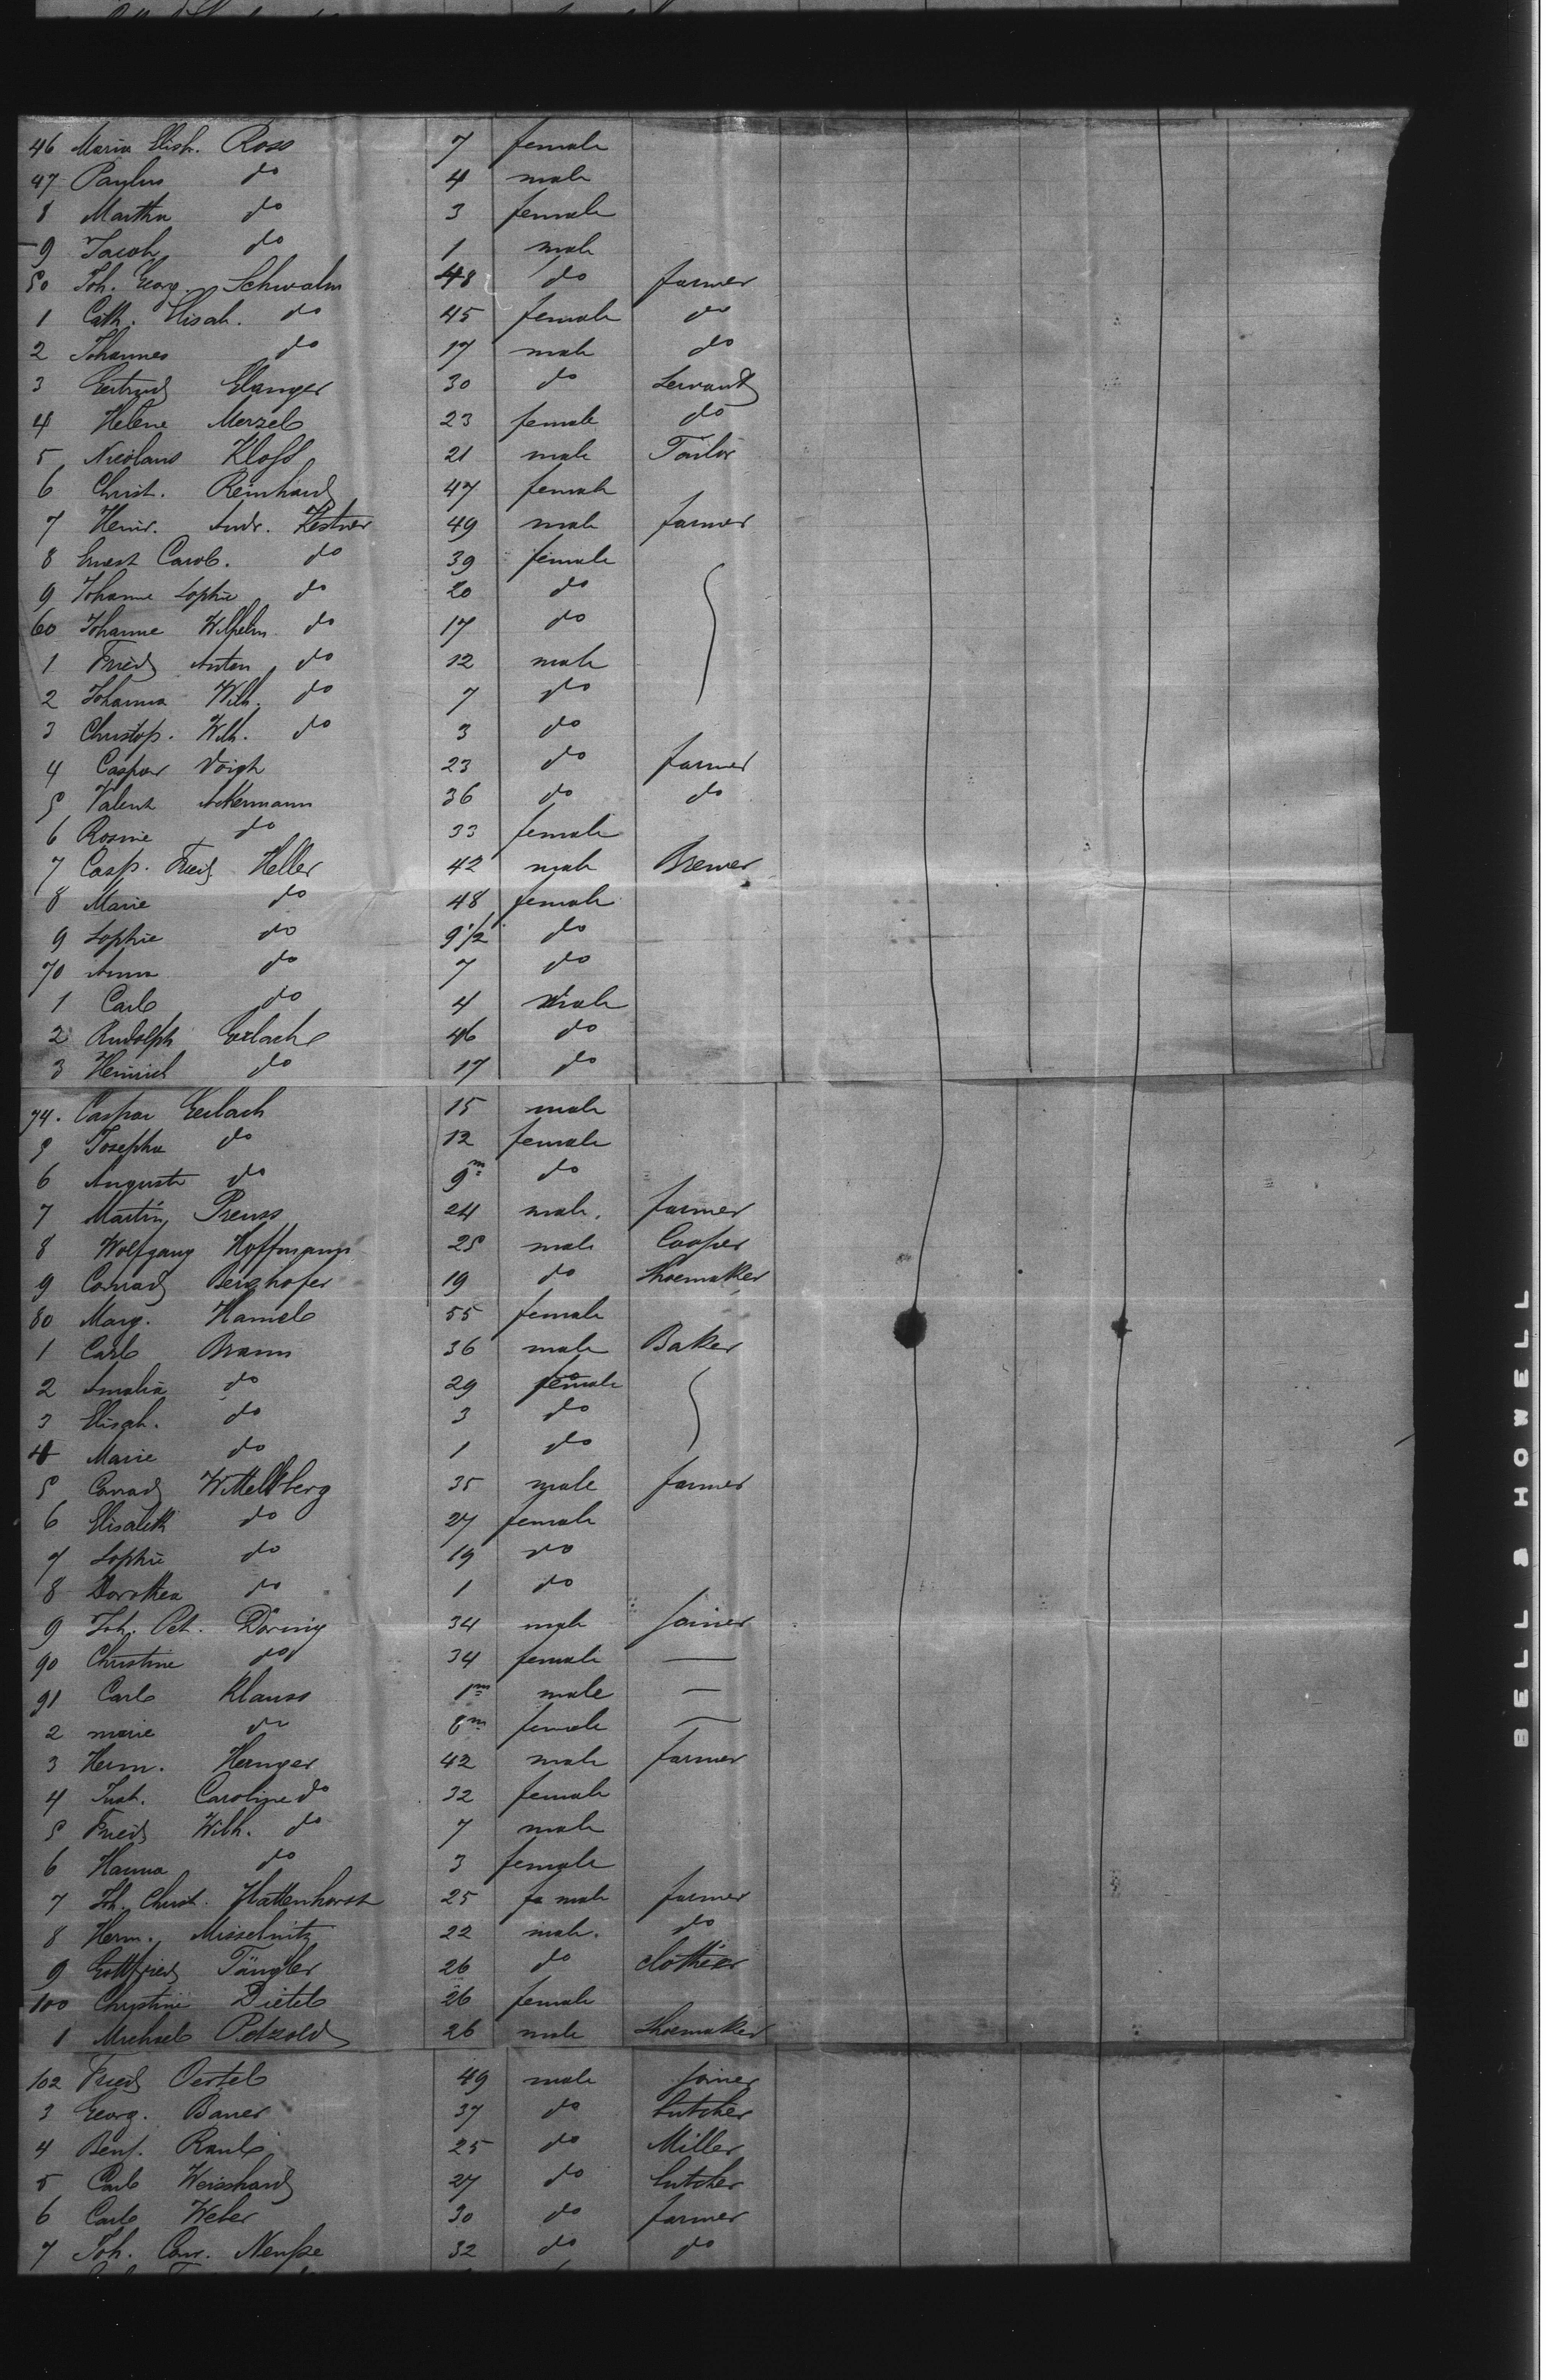 46 Maria Elisb. Ross 7 female
47 Paulus do 4 male
8 Martha do 3 female
9 Jacob do 1 male
50 Joh. Georg. Schwalm 48 do farmer
1 Cath. Elisab. do 45 female do
2 Johannes do 17 male do
3 Gertrud Elanger 30 do Servant
4 Helene Merzel 23 female do
5 Nicolaus Kloss 21 male Tailor
6 Christ. Reinhard 47 female
7 Heinr. Andr. Kestner 49 male farmer
8 Ernest Carol. do 39 female
9 Johanne Sophie do 20 do
60 Johanne Wilhelm. do 17 do
1 Fried Anton do 12 male
2 Johanna Wilh. do 7 do
3 Christop. Wilh. do 3 do
4 Caspar Voigh 23 do farmer
5 Valent Ackermann 36 do do
6 Rosine do 33 female
7 Casp. Fried Heller 42 male Brewer
8 Marie do 48 female
9 Sophie do 9 1/2 do
70 Anna do 7 do
1 Carl do 4 male
2 Rudolph Gerlach 46 do
3 Heinrich do 17 do
74. Caspar Gerlach 15 male
5 Josepha do 12 female
6 Auguste do 9m do
7 Martin Preuss 24 male. farmer
8 Wolfgang Hoffmann 25 male Cooper
9 Conrad Berghofer 19 do Shoemaker
80 Marg. Hamel 55 female
1 Carl Braun 36 male Baker
2 Amalia do 29 female
3 Elisab. do 3 do
4 Marie do 1 do
5 Conrad Wittelsberg 35 male farmer
6 Elisabeth do 27 female
7 Sophie do 19 do
8 Dorothea do 1 do
9 Joh. Pet. Döring 34 male Joiner
90 Christine do 34 female —
91 Carl Klauss 1m male —
2 marie do 8m female —
3 Herm. Hernger 42 male farmer
4 Just. Caroline do 32 female
5 Fried Wilh. do 7 male
6 Hanna do 3 female
7 Joh. Christ. Hattenhorst 25 male farmer
8 Herm. Misselnitz 22 male. do
9 Gottfried Tängler 26 do clothier
100 Christine Dietel 26 female
1 Michael Petzold 26 male Shoemaker
102 Fried Oertel 49 male Joiner
3 Georg. Bauer 37 do butcher
4 Benj. Raul 25 do Miller
5 Carl Weisshard 27 do butcher
6 Carl Weber 30 do farmer
7 Joh. Conr. 32 do do
BELL & HOWELL